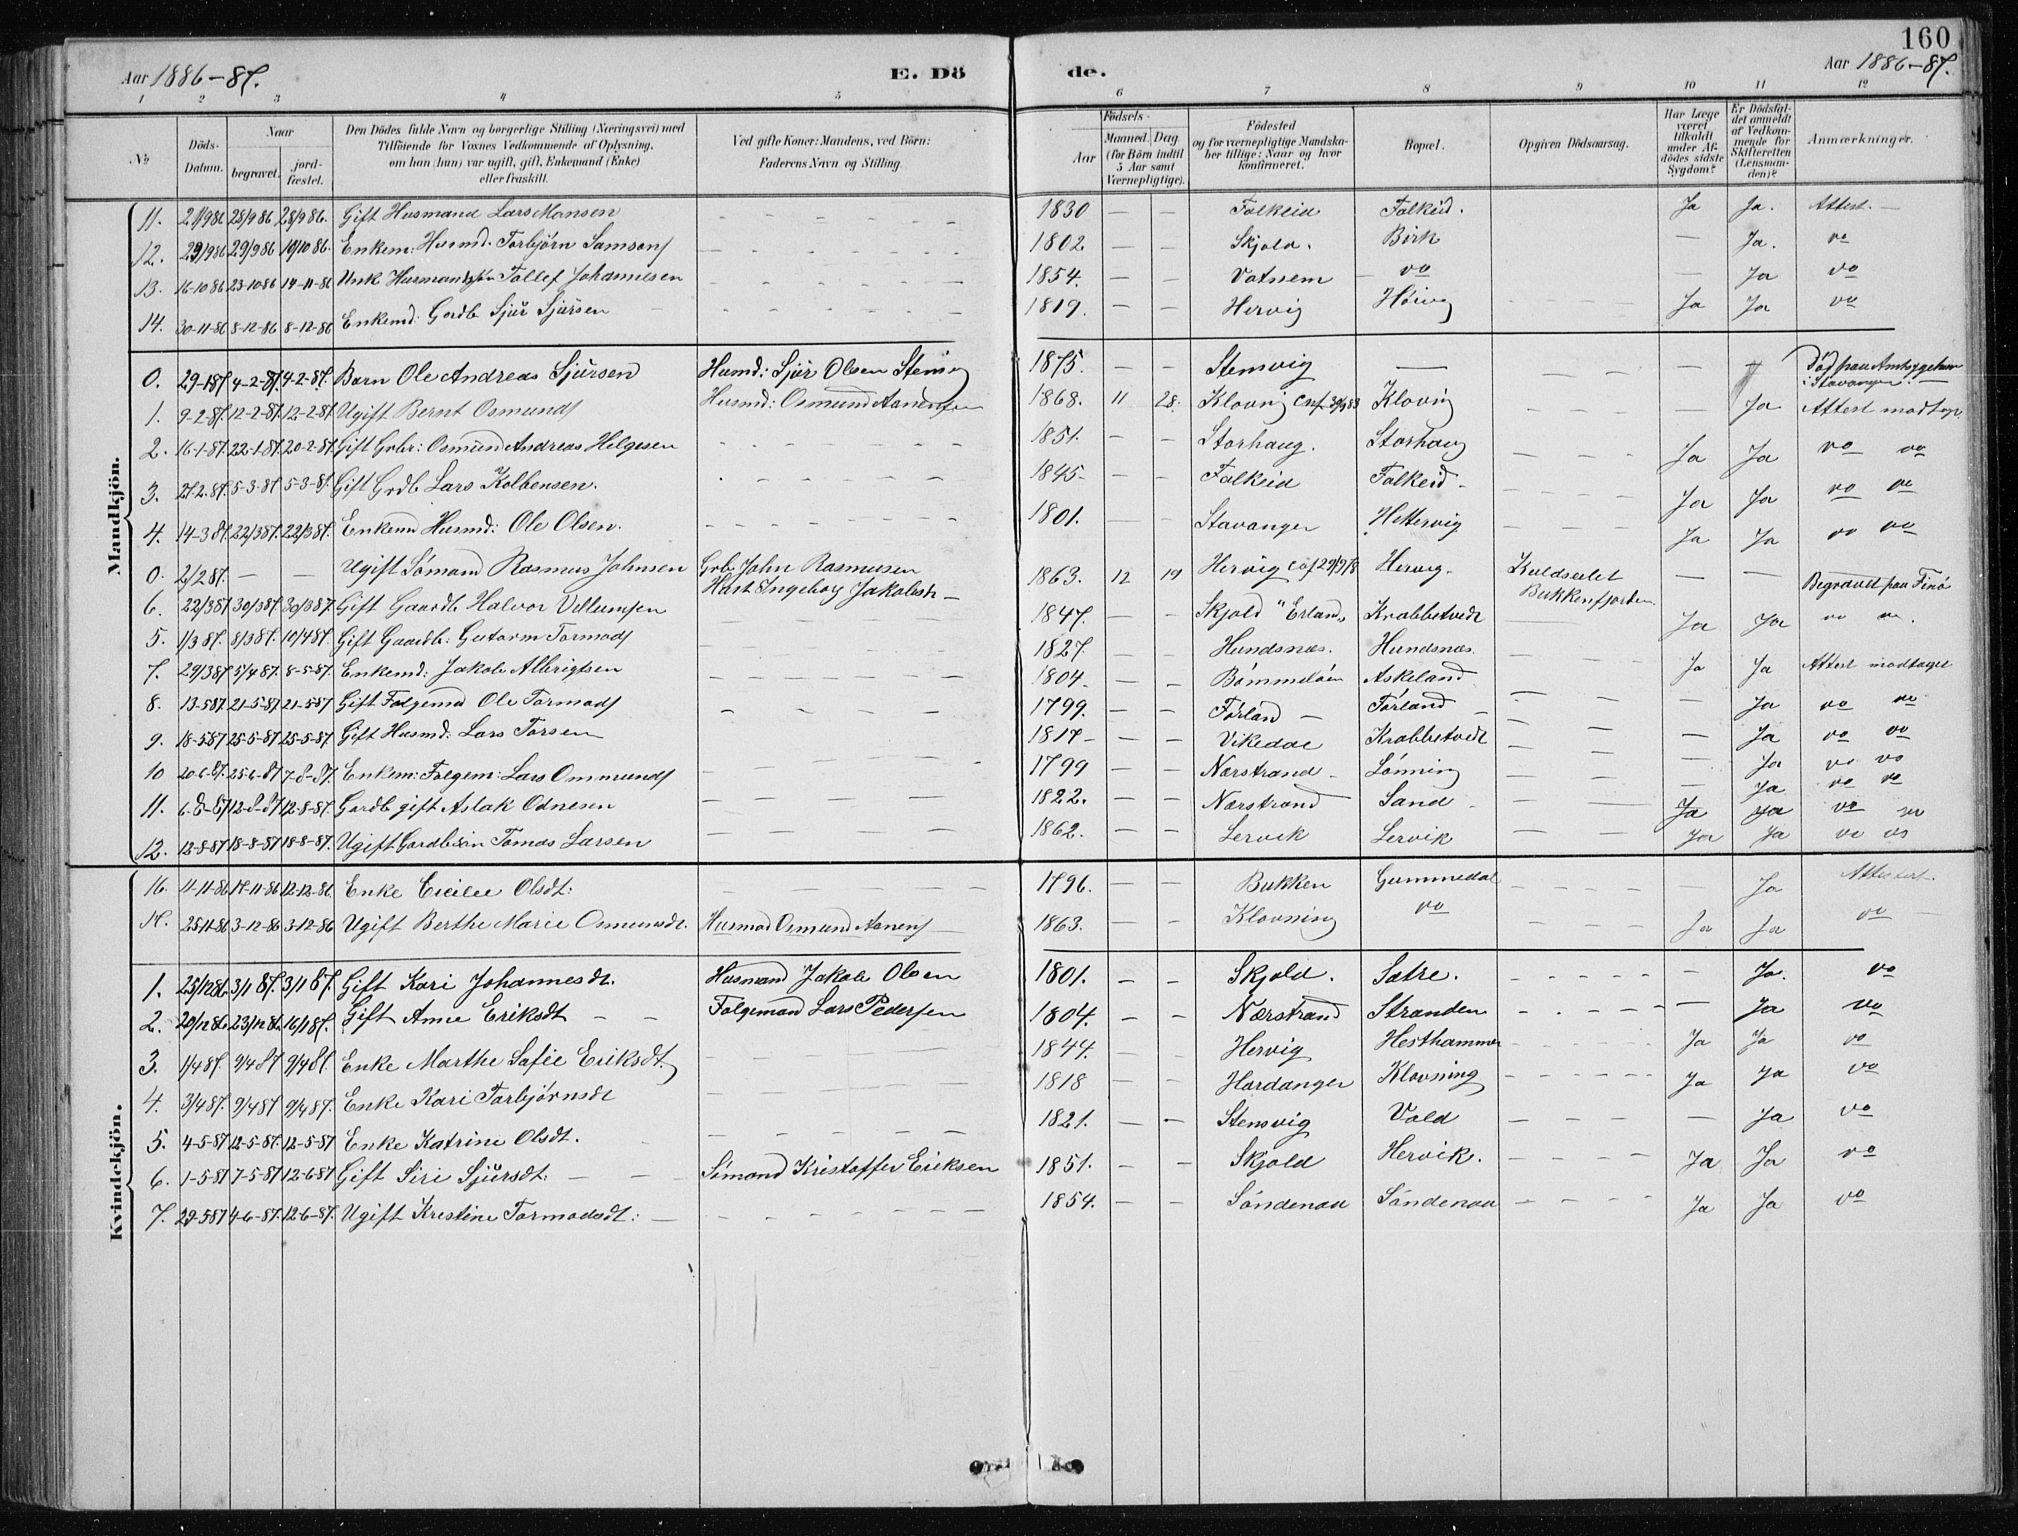 160
Aar 1886-87. E. Dö de. Aar 1886-87.
1 2 3 4 5 6 7 8 9 10 11 12
No Döds-Datum. Naar begravet. jord-fæstet. Den Dödes fulde Navn og borgerlige Stilling (Næringsvei) med Tilföiende for Voxnes Vedkommende af Oplysning, om han (hun) var ugift, gift, Enkemand (Enke) eller fraskilt. Ved gifte Koner: Mandens, ved Börn: Faderens Navn og Stilling. Födsels- Aar Maaned. Dag. (for Börn indtil 5 Aar samt Værnepligtige). Födested og for værnepligtige Mandskaber tillige: Naar og hvor konfirmeret. Bopæl. Opgiven Dödsaarsag. Har Læge været tilkaldt under Afdödes sidste Sygdom? Er Dödsfaldet anmeldt af Vedkommende for Skifteretten (Lensmanden)? Anmærkninger.
Mandkjön.
11. 21/9 86 28/9 86 28/9 86. Gift Husmand Lars Monsen 1830 — — Falkeid Falkeid. Ja Ja. Attest. —
12. 23/9 86 29/9 86 10/10 86. Enkem: Husmd. Torbjørn Samsons 1802 — — Skjold. Birk — Ja. do
13. 16-10 86 23-10 86 14-11-86 Unk Husmandssøn Tollef Johannesen 1854. — — Vatnem do — Ja do
14. 30-11-86 8-12-86 8-12-86 Enkemd: Gardb Sjur Sjursen 1819. — — Hervig Hervig Ja Ja do
0. 29-1 87. 4-2-87. 4-2-87. Barn Ole Andreas Sjursen Husmd: Sjur Olsen Stensvig 1875. — — Stensvig — — Død paa Amtssygehus i Stavanger. —
1. 9-2-87. 12-2-87. 12-2-87. Ugift Bernt Osmunds Husmd: Osmund Aanensen 1868. 11 28. Klovnig Klovnig — Ja Attest modtaget
2. 16-1-87. 22-1-87. 20-2-87. Gift Grbr: Osmund Andreas Helgesen 1851. — — Storhaug. Storhaug Ja Ja do do
3. 27-2.87. 5-3-87. 5-3-87. Gift Grdb Lars Kolbensen. 1845- — — Falkeid Falkeid. Ja Ja do do
4. 14-3 87. 22/3 87. 22/3 87. Enkem Husmd: Ole Olsen. 1801. — — Stavanger Hettervig Ja Ja do do
0. 2/2 87. — — Ugift Sømand Rasmus Johnsen Grb. John Rasmusen 1863. 12 19 Hervig Hervig. Kuldseilet — — Begravet paa Finø
Ingeborg Jakobsdt — Bukkenfjorden
6. 22/3 87 30/3 87. 30/3 87. Gift Gaardb Halvor Villumsen 1847. — — Skjold "Erland" Krabbetvedt — Ja Ja do do.
5. 1/3 87. 8/3 87. 10/4 87. Gift Gaardb: Gutorm Tormods 1827 — — Hundsnæs. Hundsnæs. Ja Ja Attest modtaget
7. 29/3 87 5/4 87. 8-5-87. Enkemd: Jakob Albrigtsen 1804. — — Bømmeløen Askeland
8. 13-5 87. 21-5-87 21-5 87 Gift Folgemd Ole Tormods 1799. — — Førland — Førland — Ja do do
9. 18-5 87 25-5-87 25-5-87 Gift Husmd: Lars Torsen 1817- — — Vikedal Krabbetvedt — Ja do do
10 20-6-87. 25-6-87 7-8-87. Enkem: Folgem: Lars Ommunds 1799 — — Nærstrand Lønning — Ja do do
11. 6-8-87 12-8-87 12-8-87. Gardb gift Aslak Odnesen 1822. — — Nærstrand Sand Ja Ja do do
12. 12-8-87 18-8-87 18-8-87. Ugift Gardbsøn Tomas Larsen 1862. — — Lervik Lervik Ja Ja do do
Kvindekjön.
16. 11-11-86 17-11-86 12-12-86 Enke Cicilie Olsdt: 1796. — — Bukken Gummedal — Ja Attestert.
17. 25/11-86 3-12-86 3-12-86 Ugift Berthe Marie Osmunsdt. Husmd Osmund Aanens 1863. — — Klovning do Ja Ja do —
1. 25/12 86. 3/1 87. 3/1 87. Gift Kari Johannesdt. Husmand Jakob Olsen 1801. — — Skjold. Satre. — Ja. do
2. 20/12 86. 23/12 86. 16/1 87. Gift Anne Eriksdt Folgemand Lars Pedersen 1804. — — Nærstrand Stranden — Ja do
3. 1/4 87. 9/4 87 9/4 87. Enke Marthe Sofie Eriksdt 1844. — — Hervig Hesthammer Ja Ja do
4. 3/4 87. 9/4 87 9/4 87. Enke Kari Torbjørnsdt 1818 — — Hardanger Klovning Ja Ja do
5. 4-5-87 12-5-87. 12-5-87 Enke Katrine Olsdt. 1821. — — Stensvig Vold — Ja do
6. 1-5-87 7-5-87 12-6-87 Gift Siri Sjursdt: Sømand Kristoffer Eriksen 1851. — — Skjold Hervik. Ja Ja do
7. 29-5 87 4-6-87. 12-6-87. Ugift Kristine Tormodsdt: — 1854. — — Søndenaa Søndenaa Ja Ja do